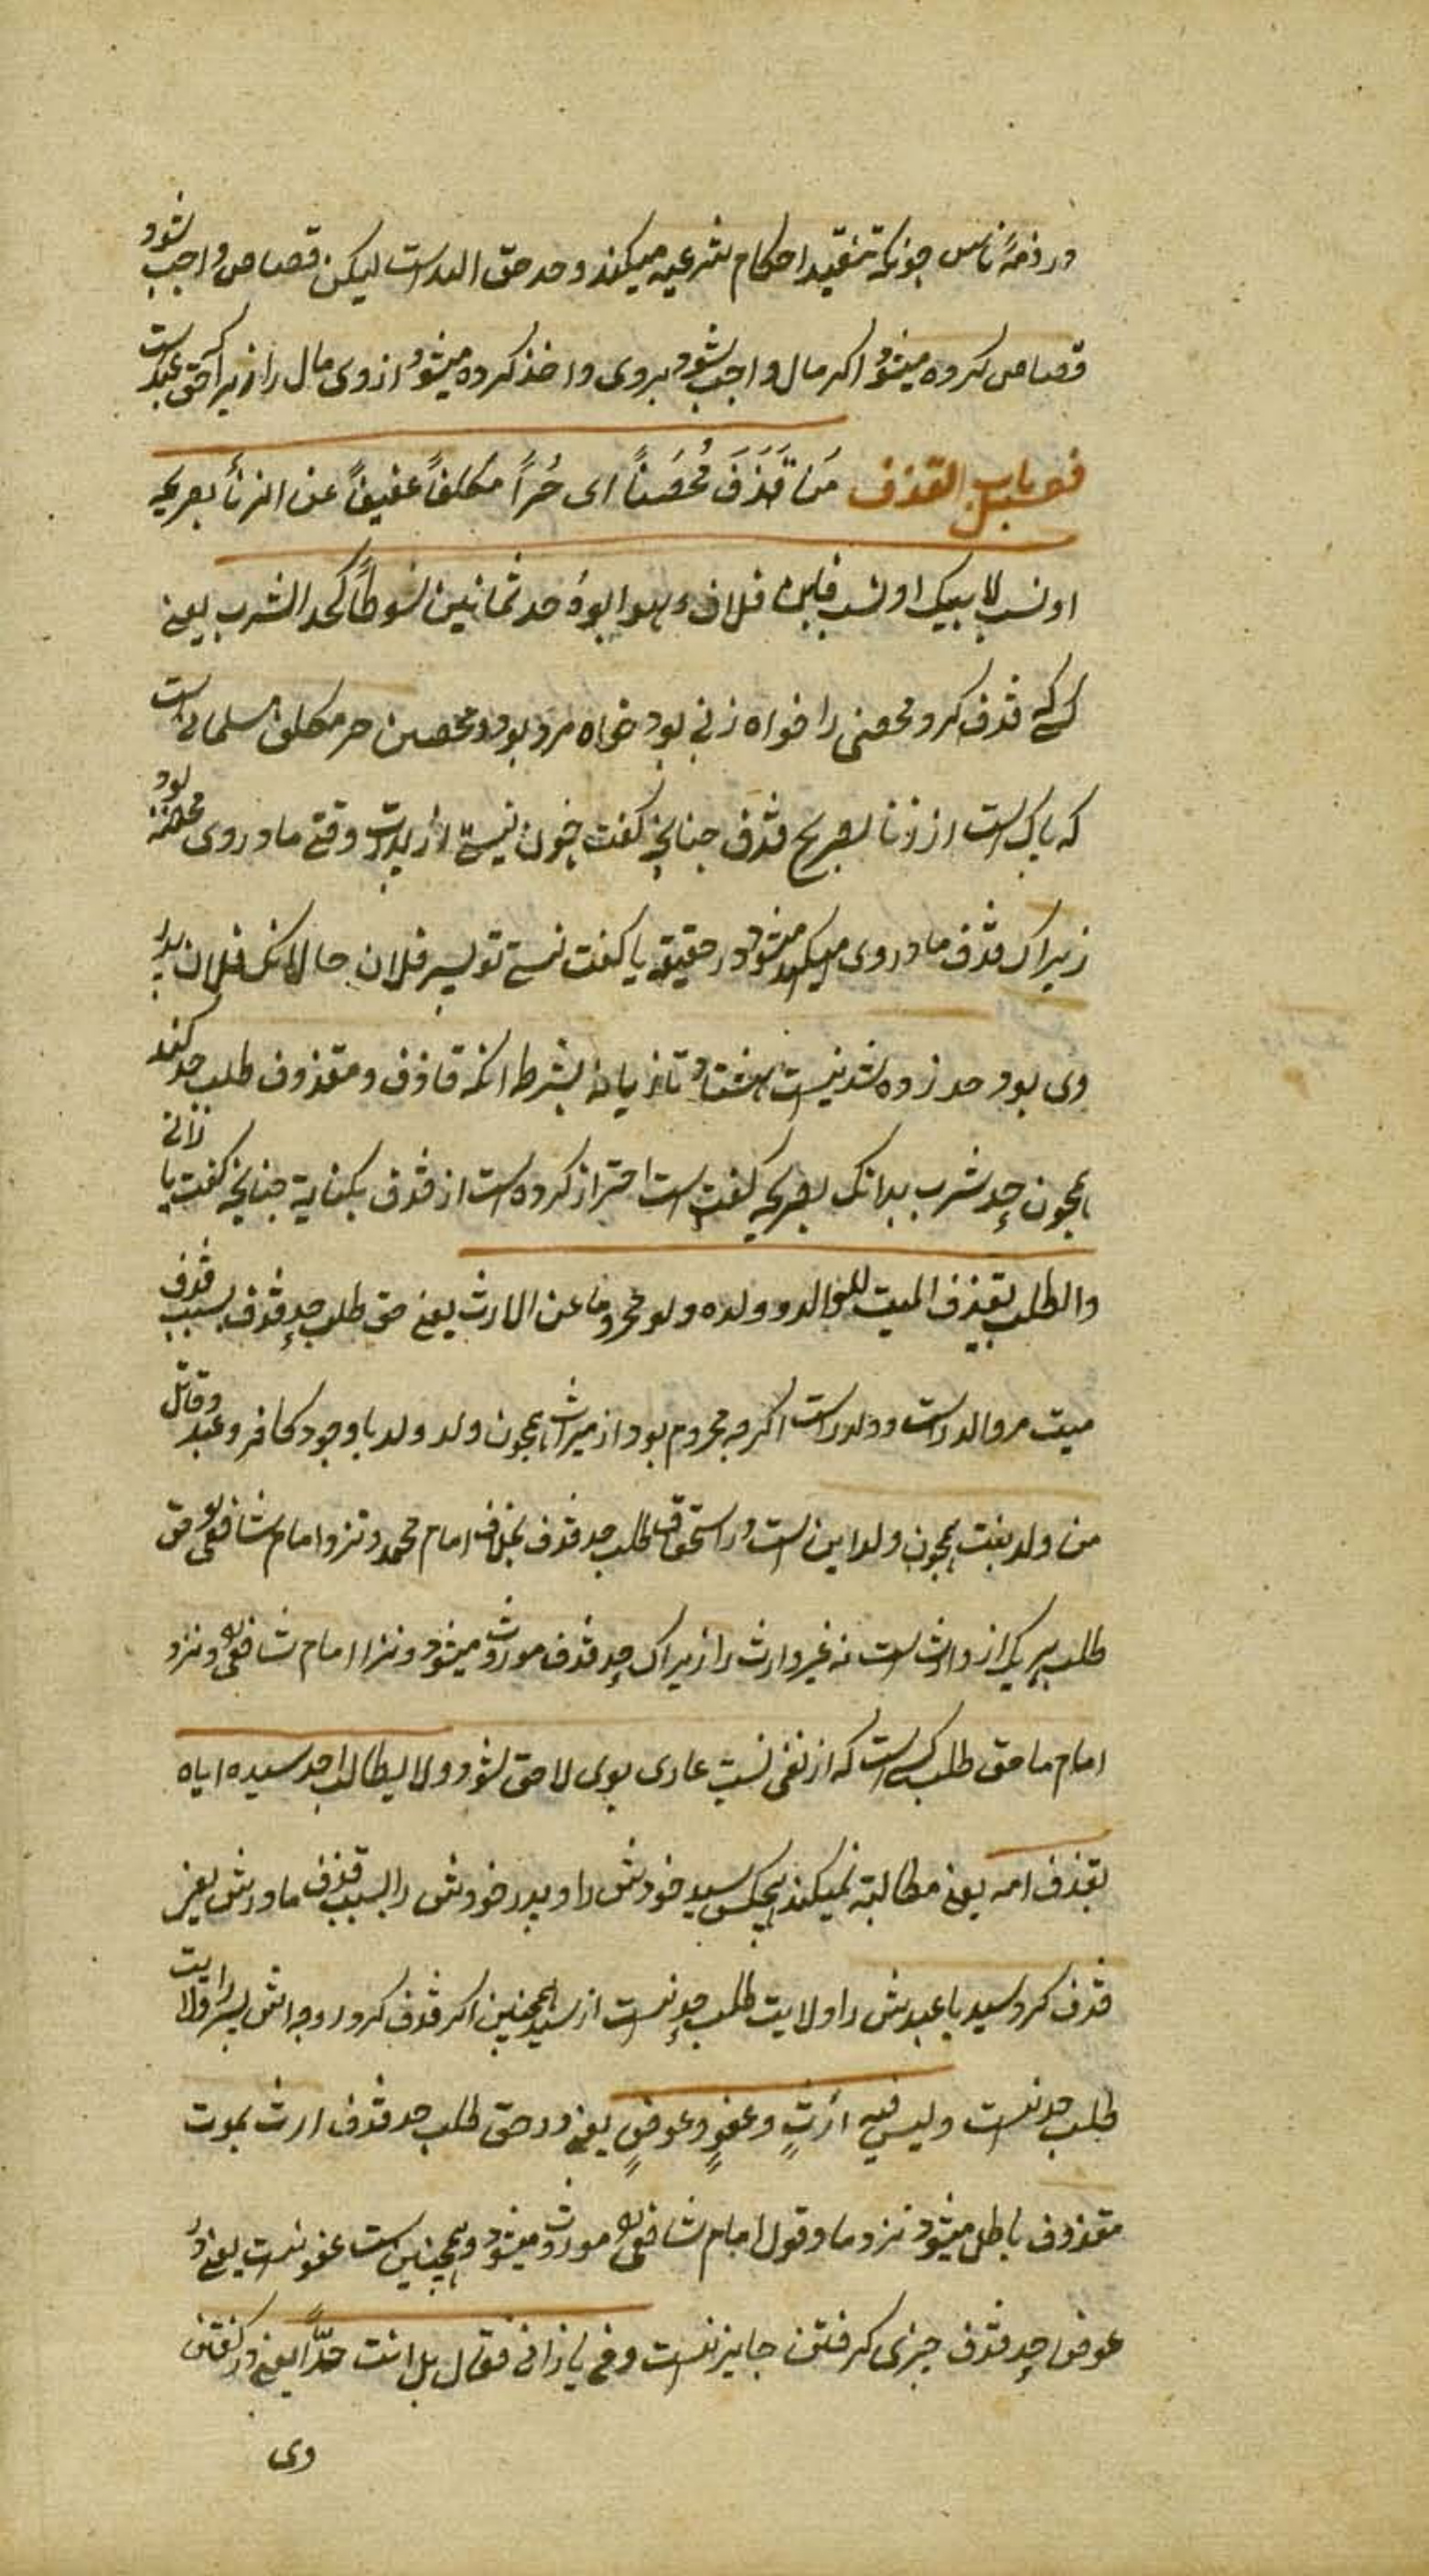 در ذمهٔ ناس چونکه تنفیذ احکام شرعیه میکند و حد حق الله است لیکن قصاص واجب شود
قصاص کرده میشود اکر مال واجب شود بروی واخذ کرده میشود ازوی مال را زیراکه حق عبد است
فصل باب القذف مَن قَذَفَ مُحْصَناً ای حُراً مکلفاً عفیفاً عن الزنأ بصریحه
او لست لابیک او لست بابن فلان وهو ابوهُ حد ثمانین سوطاً کحد الشرب یعنی
کسی که قذف کرد محصنی را خواه زنی بود خواه مرد بود و محصن حر مکلف مسلمان است
که پاک است از زنا بصریح قذف چنانچه کفت چون نیستی از پدرت وقتی مادر وی محصنه بود
زیراک قذف مادر وی میکند میشود در حقیقه یا کفت نیستی تو پسر فلان حالانک فلان پدر
وی بود حد زده شد نیست هشتاد تازیانه بشرط انکه قاذف ومقذوف طلب حد کند
همچون حد شرب بدانک بصریحه کفته است احتراز کرده است از قذف بکنایة چنانچه کفت یا زانی
والطلب بقذف المیت للوالد وولده ولو محروما عن الارث یعنی حق طلب حد قذف بسبب قذف
میت مر والد راست وولد راست اکرچه محروم بود از میراث همچون ولد ولد باوجود کافر وعبد وقاتل
من ولد بنت همچون ولد ابن است در استحقاق طلب حد قذف بخلاف امام محمد ونزد امام شافعی حق
طلب هر یکی از وارث است نه غیر وارث را زیراک حد قذف موروث میشود ونزد امام شافعی ونزد
امام ما حق طلب کسی است که از نفی نسب عاری بوی لاحق شود ولا یطالب احد سیده اباه
بقذف امه یعنی مطالبته نمیکند هیچکس سید خودش را و پدر خودش را بسبب قذف مادرش یعنی
قذف کرد سید با عبدش را ولایت طلب حد نیست از سید همچنین اکر قذف کرد زوجه اش پسر را ولایت
طلب حد نیست ولیس فیه أرثٍ وعفوٍ وعوضٍ یعنی در حق طلب حد قذف ارث بموت
مقذوف باطل میشود نزد ما وقول امام شافعی موروث میشود وهمچنین است عفو نیست یعنی در
عوض حد قذف چیزی کرفتن جایز نیست وفی یا زانی فقال بل انت حدّاً یعنی در کفتن
وی